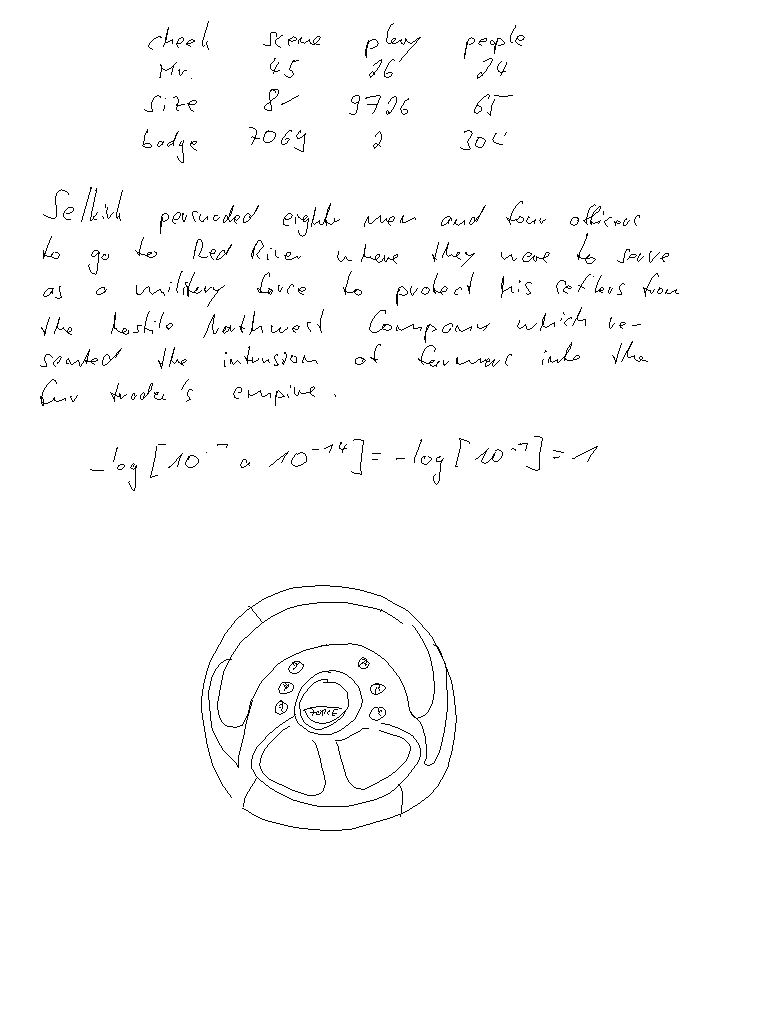 cheek scene play people
Mr. 45 26 24
size 8 9726 65
badge 7069 2 304
Selkirk persuaded eighty men and four officers
to go to Red River where they were to serve
as a military force to protect his settlers from
the hostile Northwest Company which re-
sented the intrusion of farmers into the
fur trader's empire.
-log [10⁻⁷ a 10⁻¹⁴] = -log [10⁻⁷] = 1
FORCE